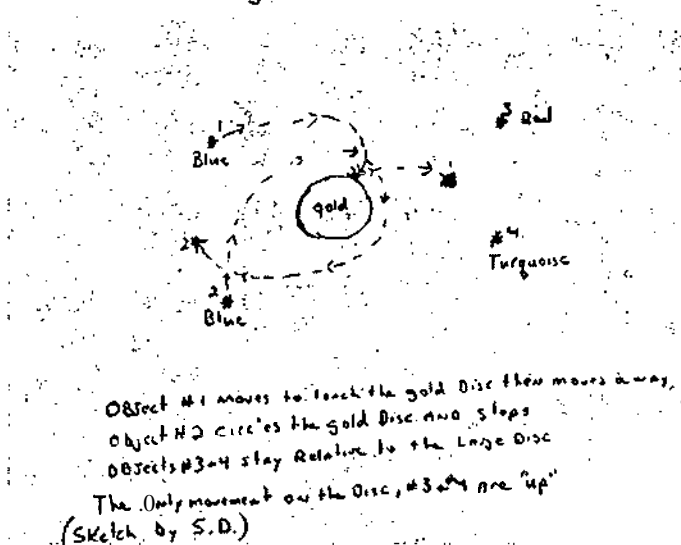 1
Blue
3 Red
1
gold
2
4
Turquoise
2
Blue
Object #1 moves to touch the gold Disc then moves away,
Object #2 circles the gold Disc AND Stops
OBJects #3+4 stay Relative to the Large Disc
The Only movement on the Disc, #3+#4 Are "up"
(Sketch by S.D.)